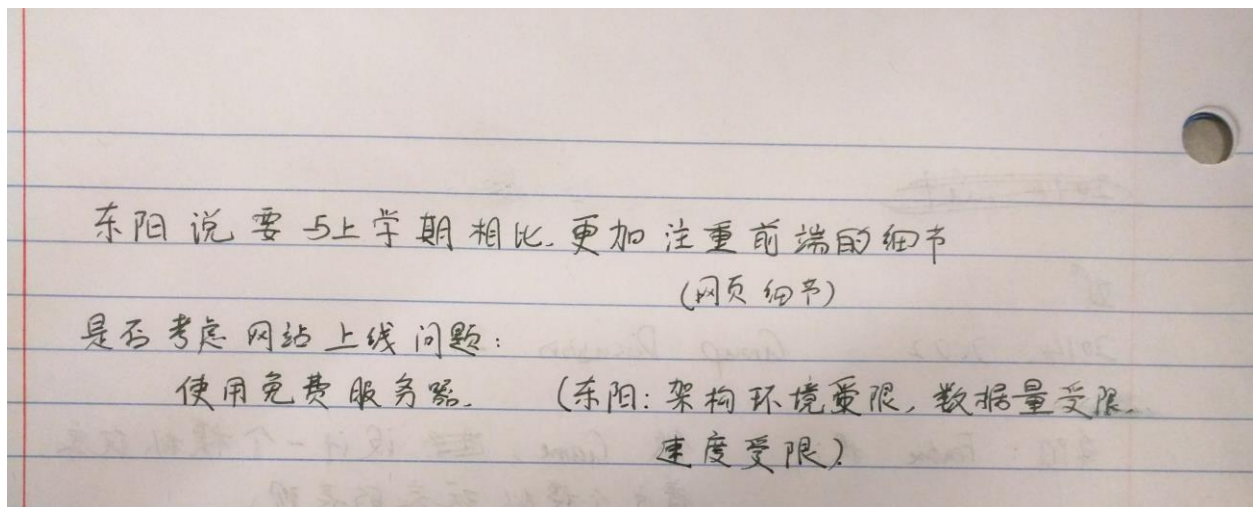 东阳说要与上学期相比.更加注重前端的细节
(网页细节)
是否考虑网站上线问题:
使用免费服务器. (东阳:架构环境受限,数据量受限.
速度受限)